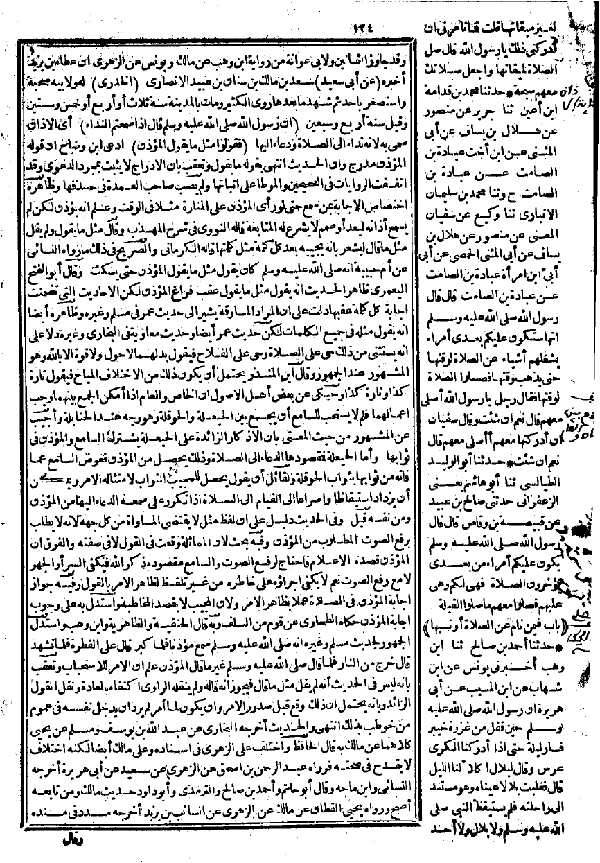 ١٢٤
وقد جاوز المائتين ولأبي عوانة من رواية ابن وهب عن مالك ويونس عن الزهري ان عطاء بن يزيد
أخبره (عن أبي سعيد) سعد بن مالك بن سنان بن عبيد الانصاري (الخدري) له ولابيه صحبة
واستصغر باحد ثم شهد ما بعدها وروى الكثير ومات بالمدينة سنة ثلاث أو أربع أو خمس وستين
وقيل سنة أربع وسبعين (ان رسول الله صلى الله عليه وسلم قال اذا سمعتم النداء) أي الاذان
سمى به لانه نداء الى الصلاة ودعاء اليها (فقولوا مثل ما يقول المؤذن) ادعى ابن وضاح ان قوله
المؤذن مدرج وان الحديث انتهى بقوله ما يقول وتعقب بأن الادراج لا يثبت بمجرد الدعوى وقد
اتفقت الروايات في الصحيحين والموطا على اثباتها ولم يصب صاحب العمدة في حذفها وظاهره
اختصاص الاجابة بمن سمع حتى لو رأى المؤذن على المنارة مثلا في الوقت وعلم انه يؤذن لكن لم
يسمع أذانه لبعد أو صمم لا يشرع له المتابعة قاله النووي في شرح المهذب وقال مثل ما يقول ولم يقل
مثل ما قال ليشعر بانه يجيبه بعد كل كلمة مثل كلمتها قاله الكرماني والصريح في ذلك ما رواه النسائي
عن أم حبيبة انه صلى الله عليه وسلم كان يقول مثل ما يقول المؤذن حتى يسكت وقال أبو الفتح
اليعمري ظاهر الحديث انه يقول مثل ما يقول عقب فراغ المؤذن لكن الاحاديث التي تضمنت
اجابة كل كلمة عقبها دلت على ان المراد المساوقة يشير الى حديث عمر في مسلم وغيره وظاهره أيضا
انه يقول مثله في جميع الكلمات لكن حديث عمر أيضا وحديث معاوية في البخاري وغيره دلا على
انه يستثنى من ذلك حي على الصلاة وحي على الفلاح فيقول بدلهما لا حول ولا قوة الا بالله وهو
المشهور عند الجمهور وقال ابن المنذر يحتمل أن يكون ذلك من الاختلاف المباح فيقول تارة
كذا وتارة كذا وحكى عن بعض أهل الاصول ان الخاص والعام اذا أمكن الجمع بينهما وجب
اعمالهما فلم لا يستحب للسامع أن يجمع بين الحيعلة والحوقلة وهو وجه عند الحنابلة وأجيب
عن المشهور من حيث المعنى بان الاذكار الزائدة على الحيعلة يشترك السامع والمؤذن في
ثوابها وأما الحيعلة فمقصودها الدعاء الى الصلاة وذلك يحصل من المؤذن فعوض السامع عما
فاته من ثوابها بثواب الحوقلة ولقائل أن يقول يحصل للمجيب الثواب لامتثاله الامر ويمكن
أن يزداد استيقاظا واسراعا الى القيام الى الصلاة اذا تكرر على سمعه الدعاء اليها من المؤذن
ومن نفسه قيل وفي الحديث دليل على ان لفظ مثل لا يقتضي المساواة من كل جهة لانه لا يطلب
برفع الصوت المطلوب من المؤذن وفيه بحث لان المماثلة وقعت في القول لا في صفته والفرق ان
المؤذن قصده الاعلام فاحتاج لرفع الصوت والسامع مقصوده ذكر الله فيكفي السر أو الجهر
لا مع رفع الصوت نعم لا يكفي اجراؤه على خاطره من غير تلفظ لظاهر الامر بالقول وفيه جواز
اجابة المؤذن في الصلاة عملا بظاهر الامر ولان المجيب لا يقصد المخاطبة واستدل به على وجوب
اجابة المؤذن حكاه الطحاوي عن قوم من السلف وبه قال الحنفية والظاهرية وابن وهب واستدل
الجمهور لحديث مسلم وغيره انه صلى الله عليه وسلم سمع مؤذنا فلما كبر قال على الفطرة فلما تشهد
قال خرج من النار فلما قال صلى الله عليه وسلم غير ما قال المؤذن علم ان الامر للاستحباب وتعقب
بانه ليس في الحديث أنه لم يقل مثل ما قال فيجوز أنه قاله ولم ينقله الراوي اكتفاء بالعادة ونقل القول
الزائد وبأنه يحتمل ان ذلك وقع قبل صدور الامر وأن يكون لما أمر لم يرد أن يدخل نفسه في عموم
من خوطب بذلك انتهى والحديث أخرجه البخاري عن عبد الله بن يوسف ومسلم عن يحيى
كلاهما عن مالك به قال الحافظ واختلف على الزهري في اسناده وعلى مالك أيضا لكنه اختلاف
لا يقدح في صحته فرواه عبد الرحمن بن اسحق عن الزهري عن سعيد عن أبي هريرة أخرجه
النسائي وابن ماجه وقال أبو حاتم وأحمد بن صالح والترمذي وأبو داود حديث مالك ومن تابعه
أصح ورواه يحيى القطان عن مالك عن الزهري عن السائب بن يزيد أخرجه مسدد في مسنده
وقال
لغير ميقاتها قلت فما تأمرني ان
أدركني ذلك يا رسول الله قال صل
الصلاة لميقاتها واجعل صلاتك
معهم سبحة * حدثنا محمد بن قدامة
ابن أعين ثنا جرير عن منصور
عن هلال بن يساف عن أبي
المثنى عن ابن أخت عبادة بن
الصامت عن عبادة بن
الصامت ح وثنا محمد بن سليمان
الانباري ثنا وكيع عن سفيان
المعنى عن منصور عن هلال بن
يساف عن أبي المثنى الحمصي عن أبي
أبي ابن امرأة عبادة بن الصامت
عن عبادة بن الصامت قال قال
رسول الله صلى الله عليه وسلم
انها ستكون عليكم بعدي أمراء
يشغلهم أشياء عن الصلاة لوقتها
حتى يذهب وقتها فصلوا الصلاة
لوقتها فقال رجل يا رسول الله أصلي
معهم قال نعم ان شئت وقال سفيان
ان أدركتها معهم أأصلي معهم قال
نعم ان شئت * حدثنا أبو الوليد
الطيالسي ثنا أبو هاشم يعني
الزعفراني حدثني صالح بن عبيد
عن قبيصة بن وقاص قال قال
رسول الله صلى الله عليه وسلم
يكون عليكم أمراء من بعدي
يؤخرون الصلاة فهي لكم وهي
عليهم فصلوا معهم ما صلوا القبلة
(باب فيمن نام عن الصلاة أو نسيها)
* حدثنا أحمد بن صالح ثنا ابن
وهب أخبرني يونس عن ابن
شهاب عن ابن المسيب عن أبي
هريرة ان رسول الله صلى الله عليه
وسلم حين قفل من غزوة خيبر
فسار ليلة حتى اذا أدركنا الكرى
عرس وقال لبلال اكلأ لنا الليل
قال فغلبت بلالا عيناه وهو مستند
الى راحلته فلم يستيقظ النبي صلى
الله عليه وسلم ولا بلال ولا أحد